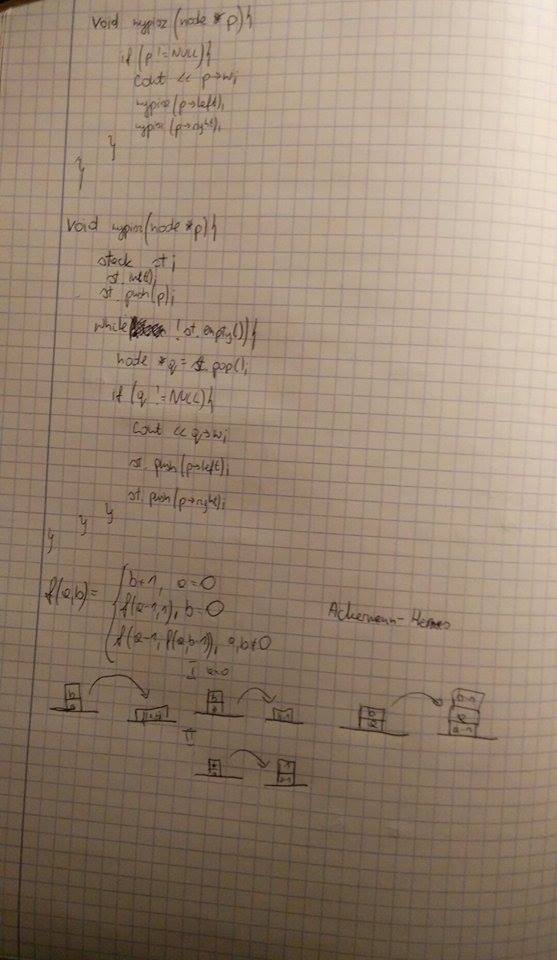 void wypisz (node *p){
if (p != NULL){
cout << p→w;
wypisz(p→left);
wypisz(p→right);
}
}
void wypisz(node *p){
stack st;
st.init();
st.push(p);
while ! st.empty()){
node *q = st.pop();
if (q != NULL){
cout << q→w;
st.push(p→left);
st.push(p→right);
} } }
f(a,b) =
b+1, a=0
f(a-1,1), b=0
f(a-1, f(a,b-1)), a,b≠0
Ackermann-Hermes
I a=0
b
a
b+1
b
b
a
b-1
a
a-1
II
a
1
a-1